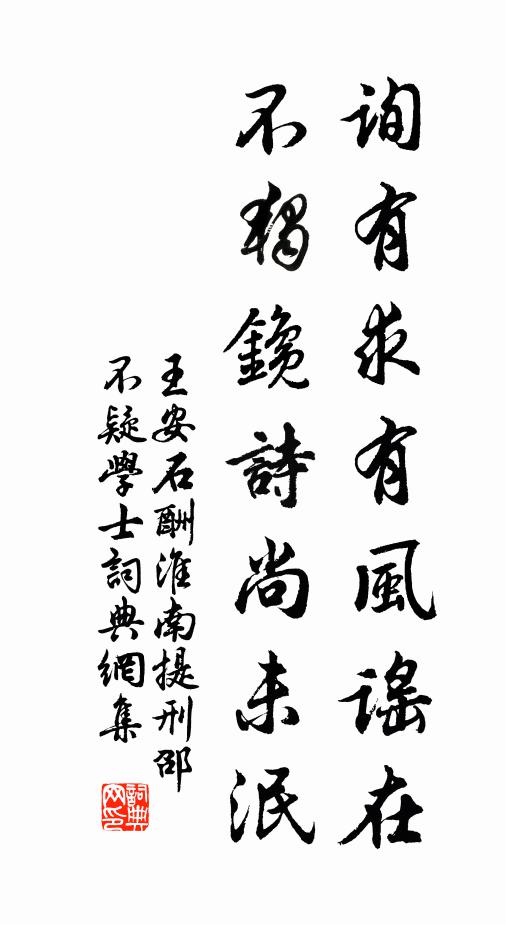 詢有求有風謠在
不獨鑱詩尚未泯
王安石酬淮南提刑邵
不疑學士詞典網集
詞典网印